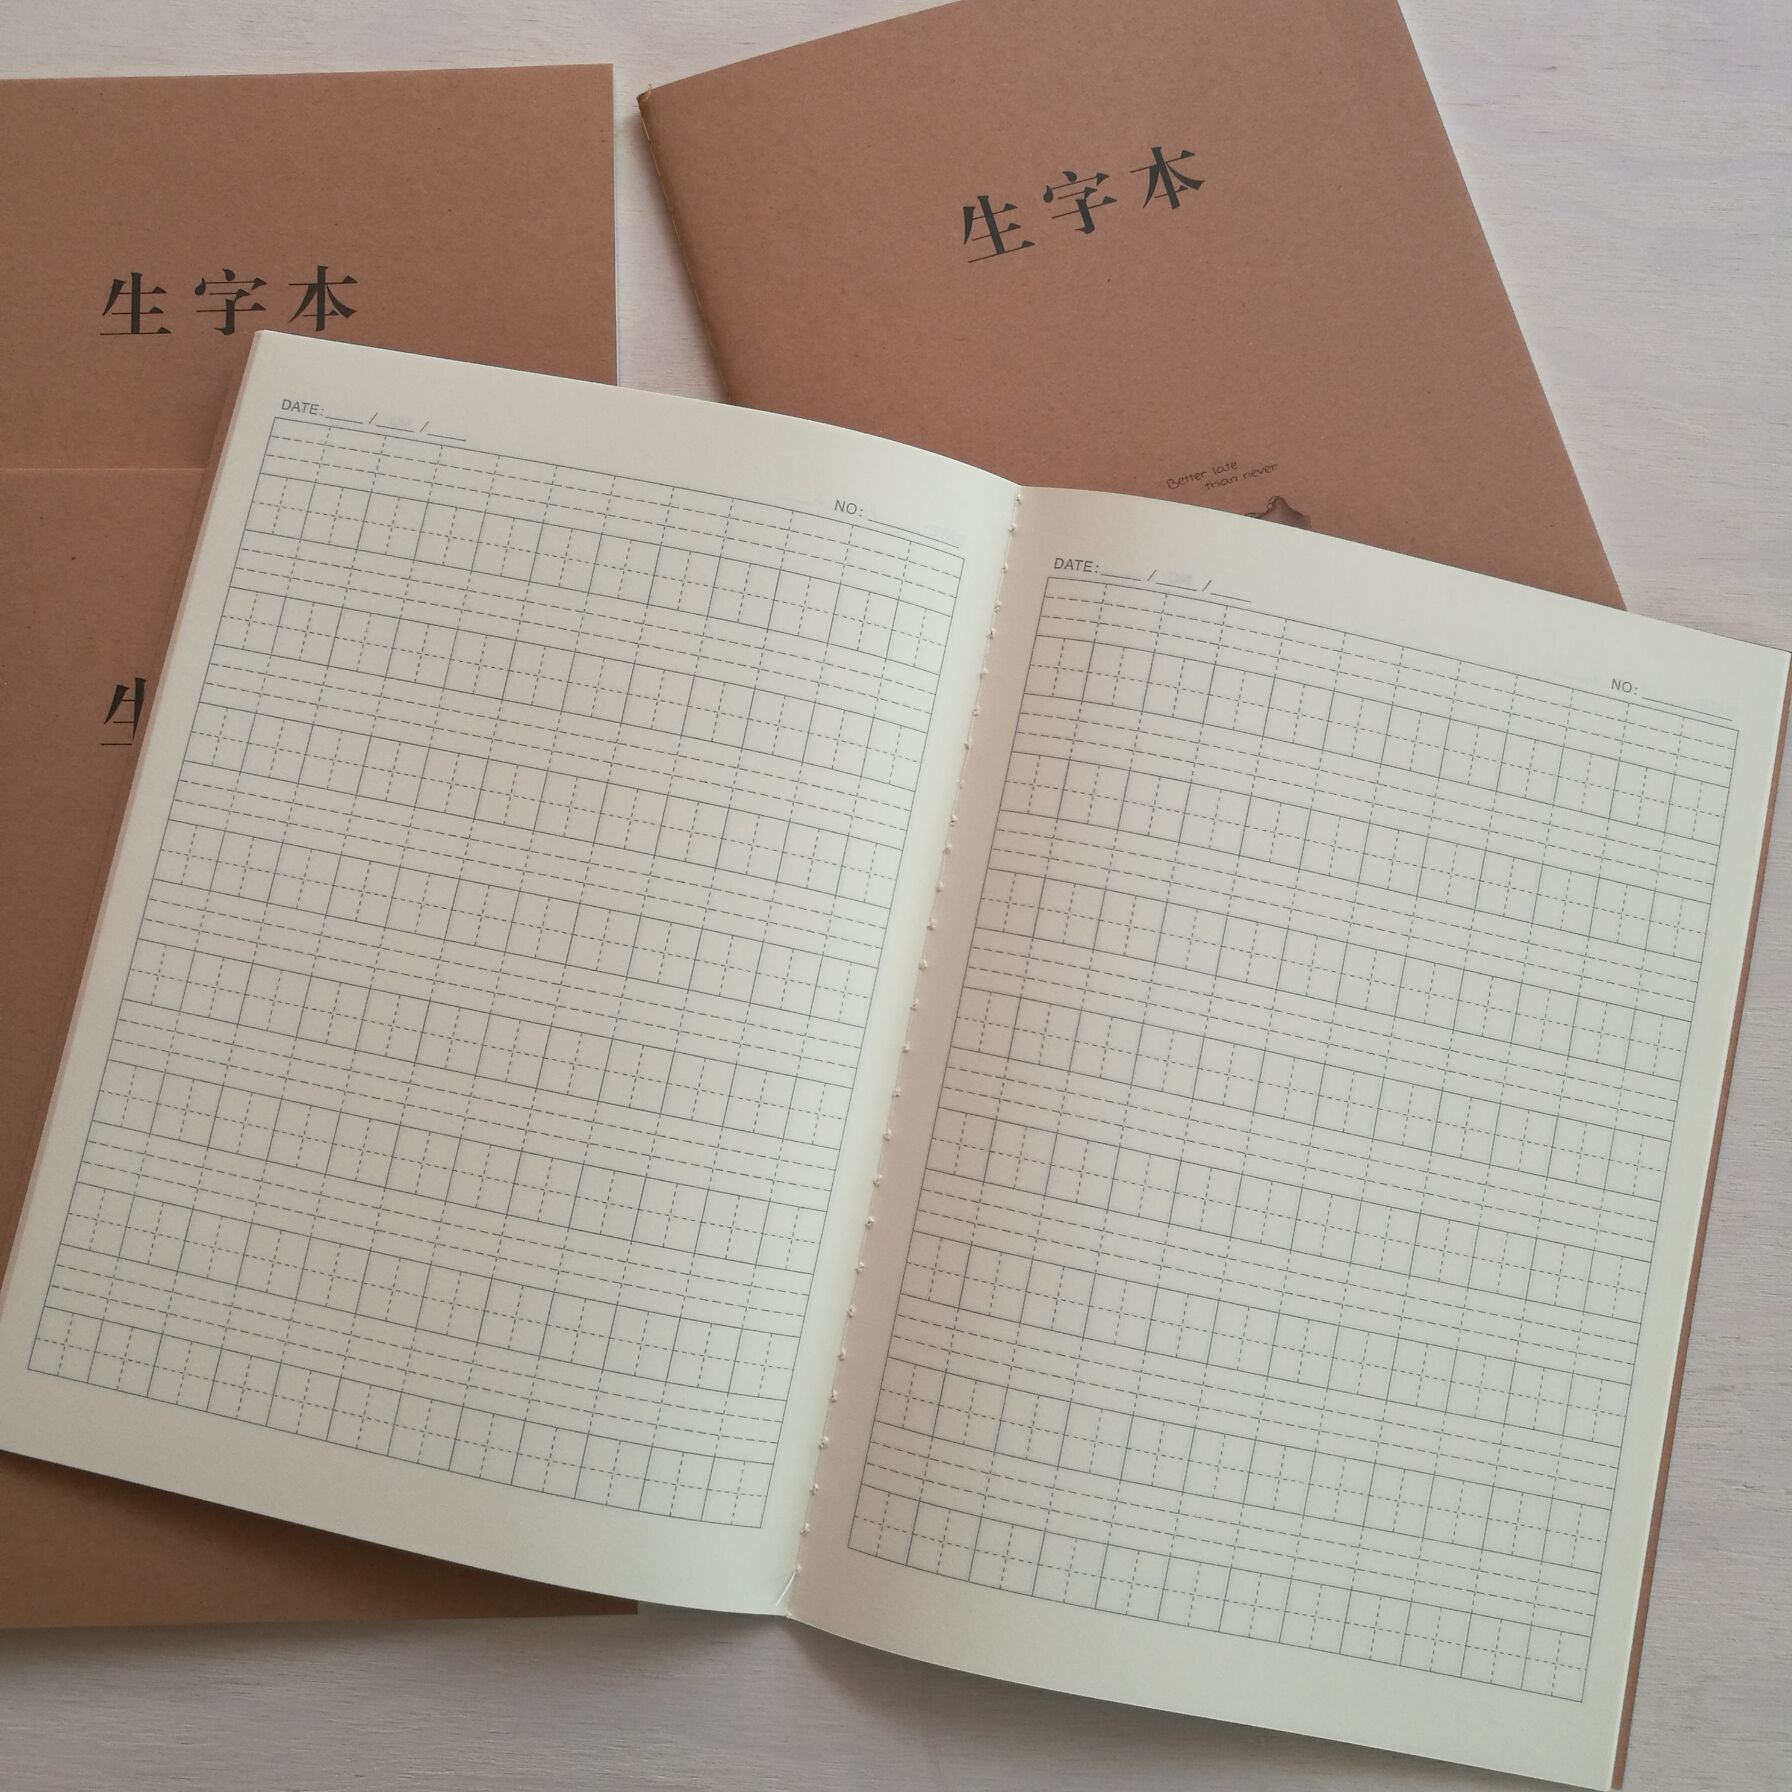 生字本
生字本
Better late
than never
生
DATE:____/____/____
NO:________
DATE:____/____/____
NO:________